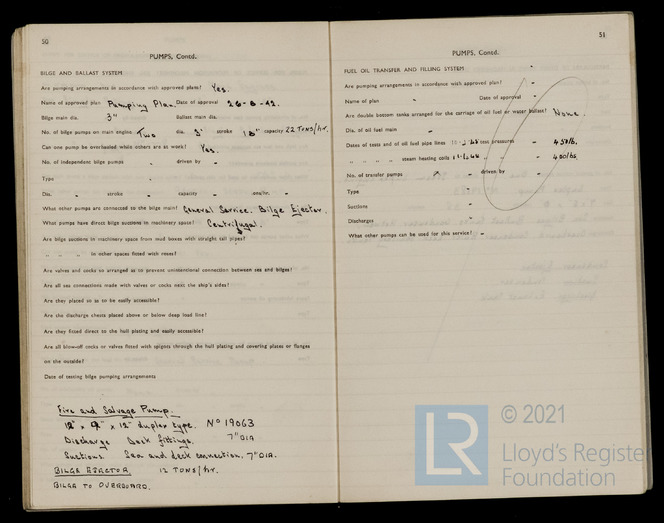 50
PUMPS, Contd.
BILGE AND BALLAST SYSTEM
Are pumping arrangements in accordance with approved plans? Yes.
Name of approved plan Pumping Plan. Date of approval 26-8-42.
Bilge main dia. 3" Ballast main dia.
No. of bilge pumps on main engine Two dia. 3" stroke 18" capacity 22 TONS/hr.
Can one pump be overhauled while others are at work? Yes.
No. of independent bilge pumps - driven by -
Type -
Dia. - stroke - capacity - tons/hr. -
What other pumps are connected to the bilge main? General Service. Bilge Ejector.
What pumps have direct bilge suctions in machinery space? Centrifugal.
Are bilge suctions in machinery space from mud boxes with straight tail pipes?
" " " in other spaces fitted with roses?
Are valves and cocks so arranged as to prevent unintentional connection between sea and bilges?
Are all sea connections made with valves or cocks next the ship's sides?
Are they placed so as to be easily accessible?
Are the discharge chests placed above or below deep load line?
Are they fitted direct to the hull plating and easily accessible?
Are all blow-off cocks or valves fitted with spigots through the hull plating and covering plates or flanges
on the outside?
Date of testing bilge pumping arrangements
Fire and Salvage Pump.
12" x 12" duplex type. No 19063
Discharge Deck fittings. 7" DIA
Suctions. Sea and deck connection. 7" DIA.
BILGE EJECTOR 12 TONS/hr.
BILGE TO OVERBOARD.
51
PUMPS, Contd.
FUEL OIL TRANSFER AND FILLING SYSTEM -
Are pumping arrangements in accordance with approved plan? -
Name of plan - Date of approval -
Are double bottom tanks arranged for the carriage of oil fuel or water ballast? None.
Dia. of oil fuel main -
Dates of tests and of oil fuel pipe lines test pressures - lb.
" " " " steam heating coils " " - 400 lbs.
No. of transfer pumps - driven by -
Type -
Suctions -
Discharges -
What other pumps can be used for this service? -
© 2021
Lloyd's Register
Foundation